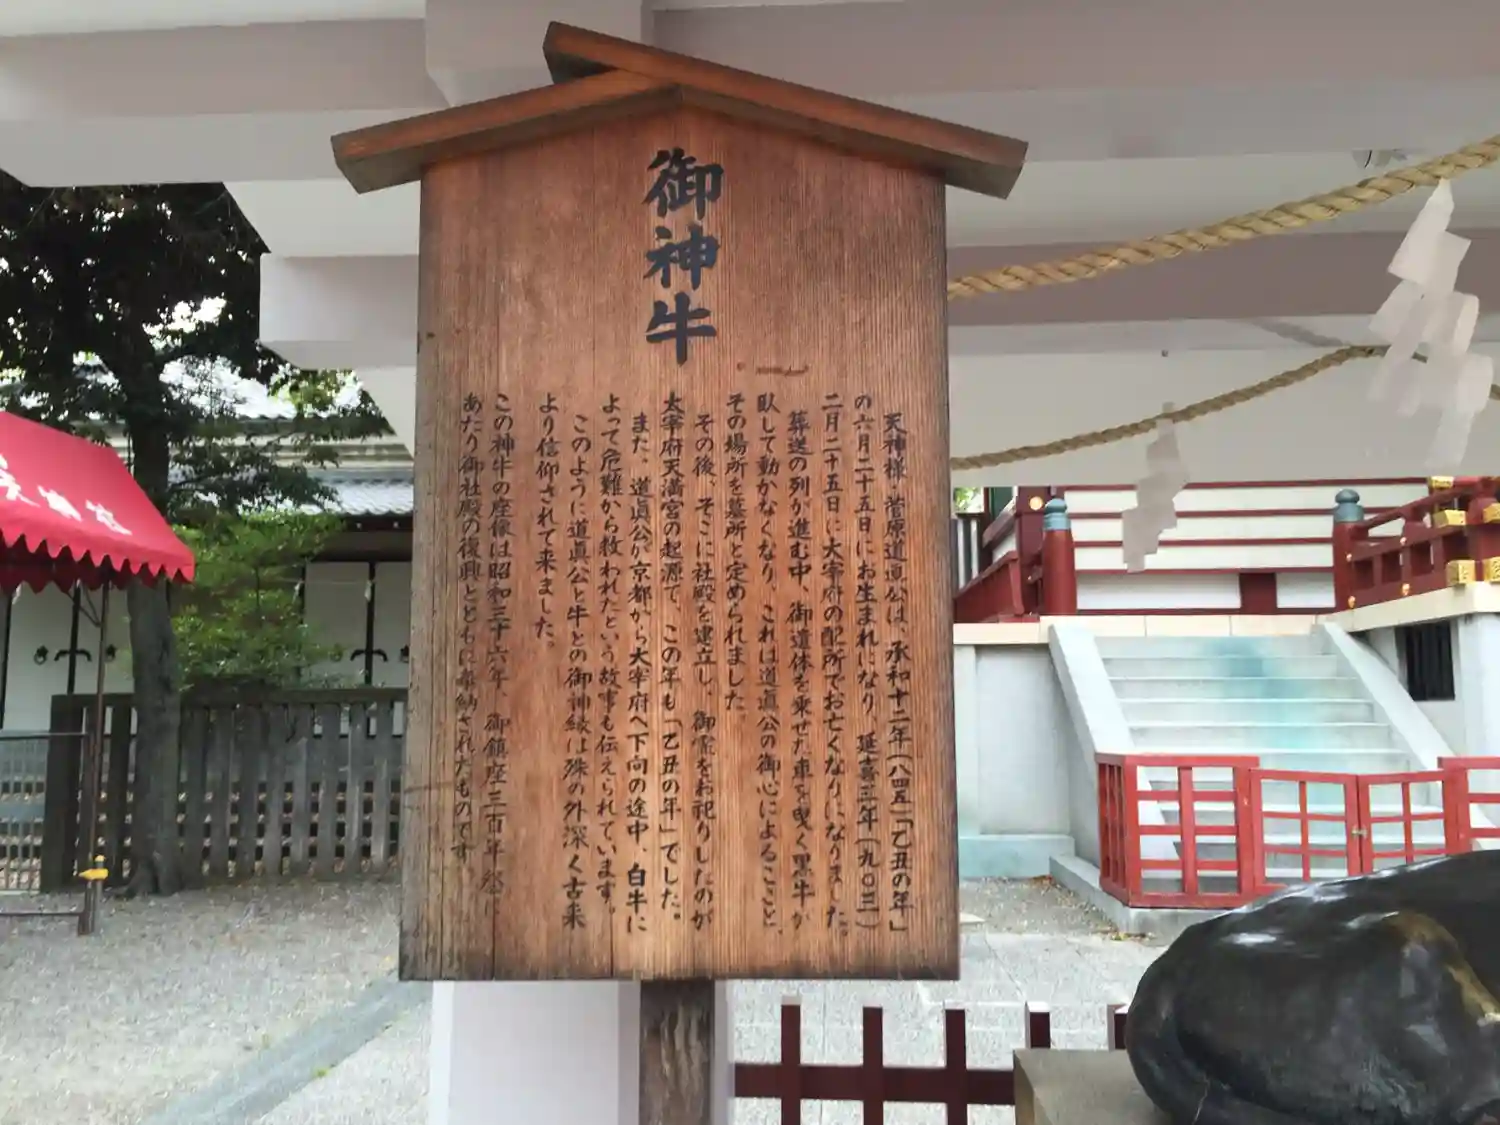 御神牛
天神様 菅原道眞公は、承和十二年(八四五)「乙丑の年」
の六月二十五日にお生まれになり、延喜三年(九〇三)
二月二十五日に大宰府の配所でお亡くなりになりました。
葬送の列が進む中、御遺体を乗せた車を曳く黒牛が
臥して動かなくなり、これは道眞公の御心によることと、
その場所を墓所と定められました。
その後、そこに社殿を建立し、御霊をお祀りしたのが
太宰府天満宮の起源で、この年も「乙丑の年」でした。
また、道眞公が京都から大宰府へ下向の途中、白牛に
よって危難から救われたという故事も伝えられています。
このように道眞公と牛との御神縁は殊の外深く古来
より信仰されて来ました。
この神牛の座像は昭和三十六年、御鎮座三百年祭に
あたり御社殿の復興とともに奉納されたものです。